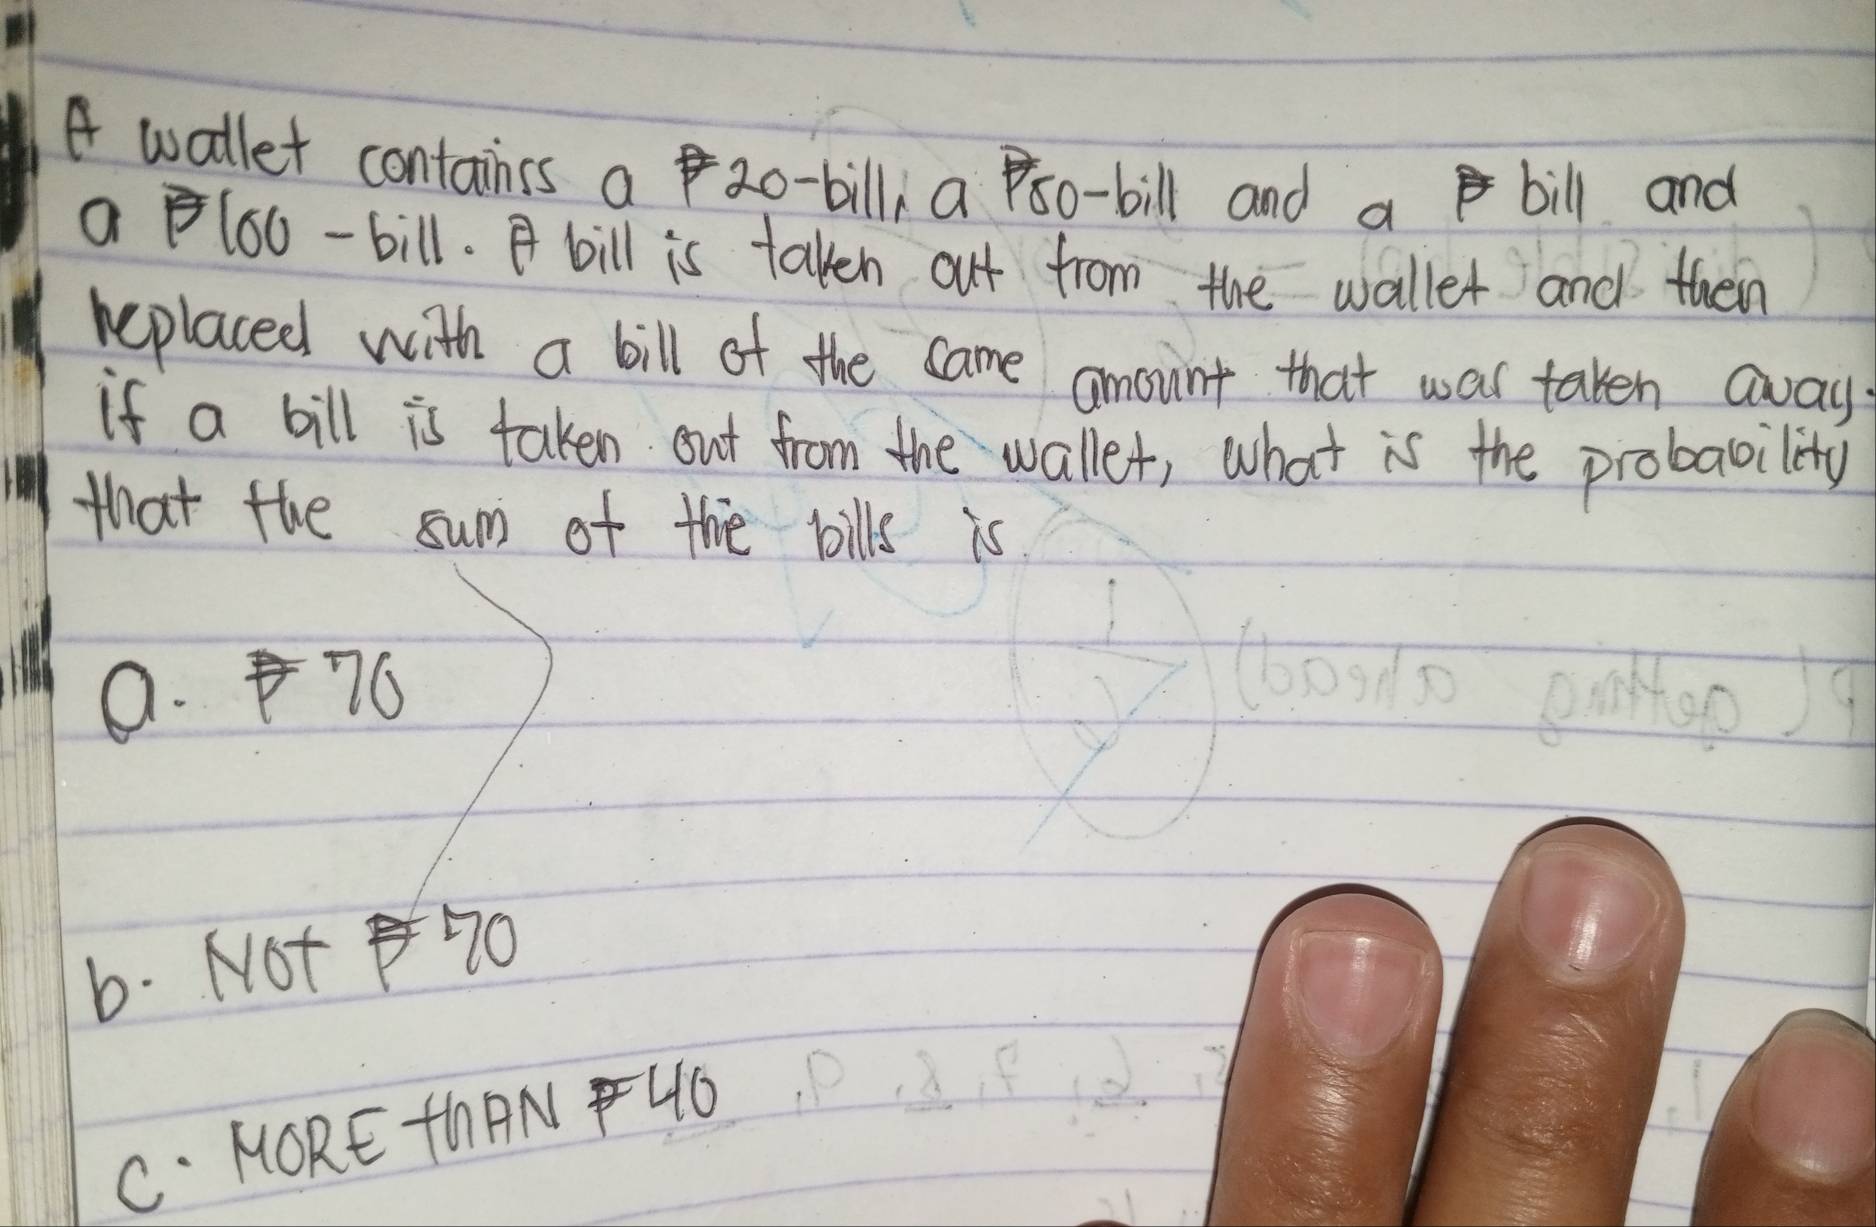 A wallet containss a ₱20-bill, a ₱50-bill and a ₱ bill and
a ₱100-bill. A bill is taken out from the wallet and then
replaced with a bill of the same amount that was taken away.
if a bill is taken out from the wallet, what is the probability
that the sum of the bills is
a. ₱70
b. Not ₱70
c. MORE thAN ₱40